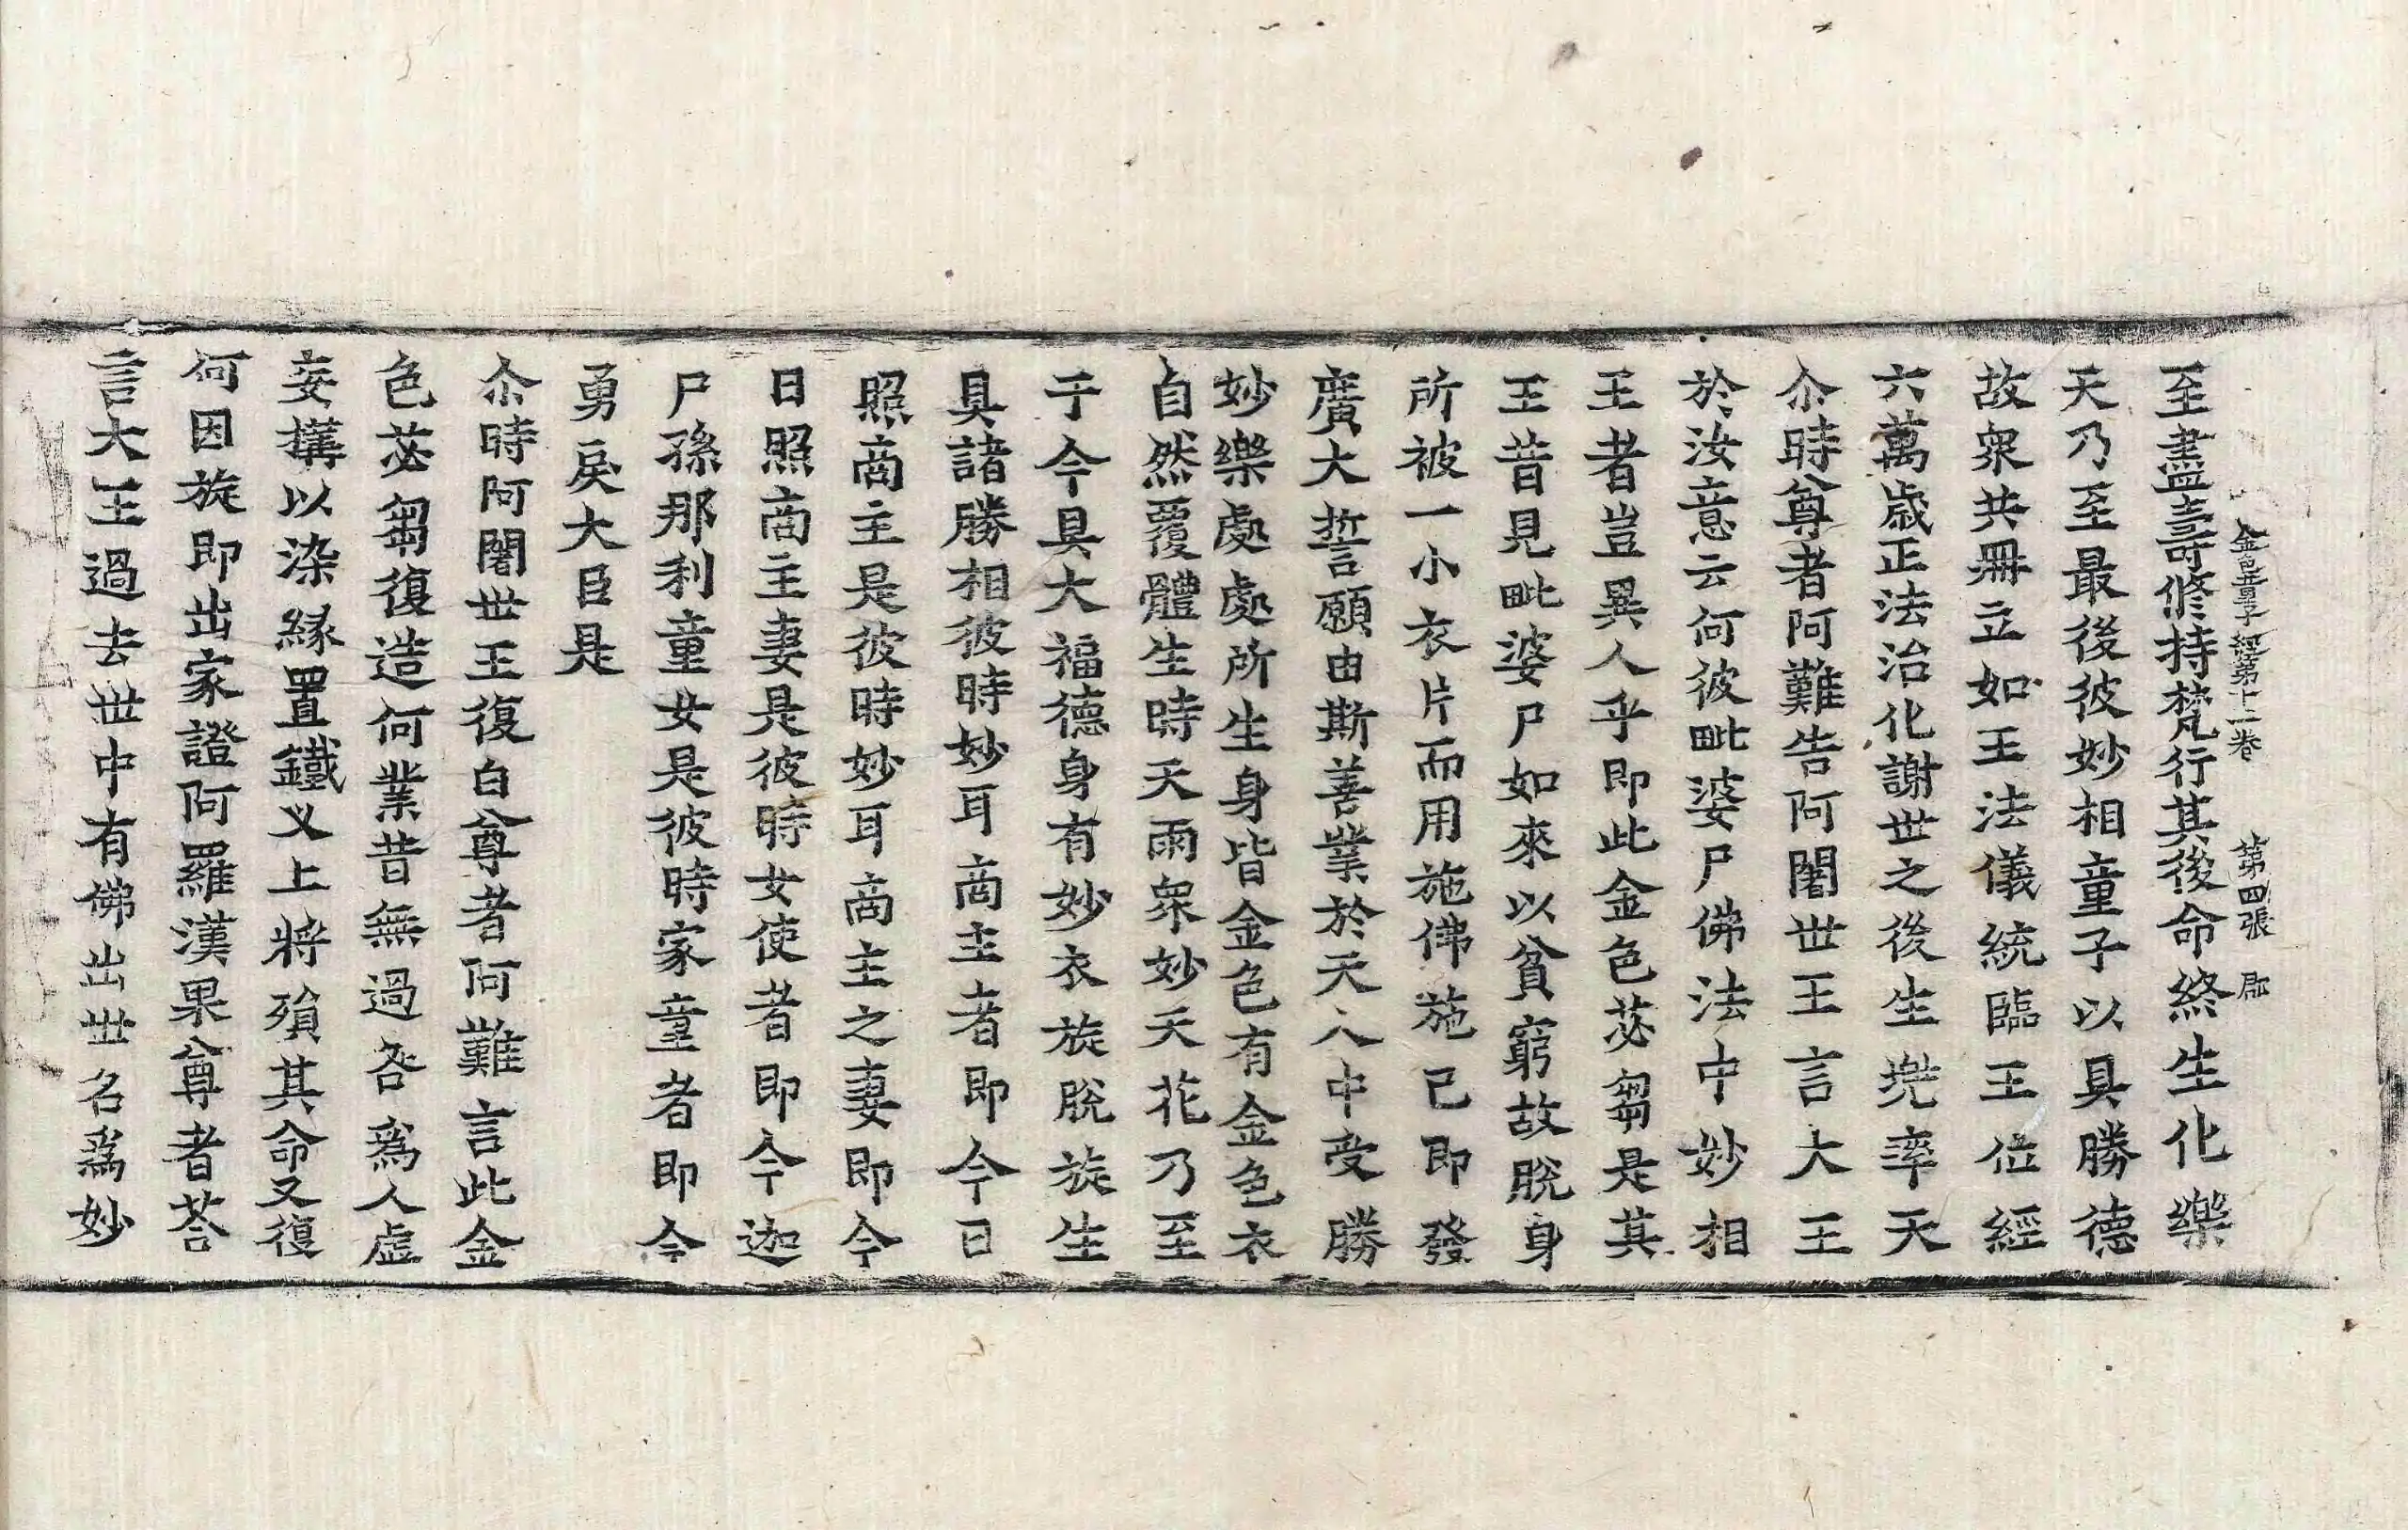 金色童子經第十二卷 第四張 郡
至盡壽修持梵行其後命終生化樂
天乃至最後彼妙相童子以具勝德
故衆共冊立如王法儀統臨王位經
六萬歳正法治化謝世之後生兜率天
尒時尊者阿難告阿闍世王言大王
於汝意云何彼毗婆尸佛法中妙相
王者豈異人乎即此金色苾芻是其
王昔見毗婆尸如來以貧窮故脫身
所被一小衣片而用施佛施已即發
廣大誓願由斯善業於天人中受勝
妙樂處處所生身皆金色有金色衣
自然覆體生時天雨衆妙天花乃至
于今具大福德身有妙衣旋脫旋生
具諸勝相彼時妙耳商主者即今日
照商主是彼時妙耳商主之妻即今
日照商主妻是彼時女使者即今迦
尸孫那利童女是彼時家童者即今
勇戾大臣是
尒時阿闍世王復白尊者阿難言此金
色苾芻復造何業昔無過咎爲人虛
妄搆以染緣置鐵叉上將殞其命又復
何因旋即出家證阿羅漢果尊者荅
言大王過去世中有佛出世名爲妙